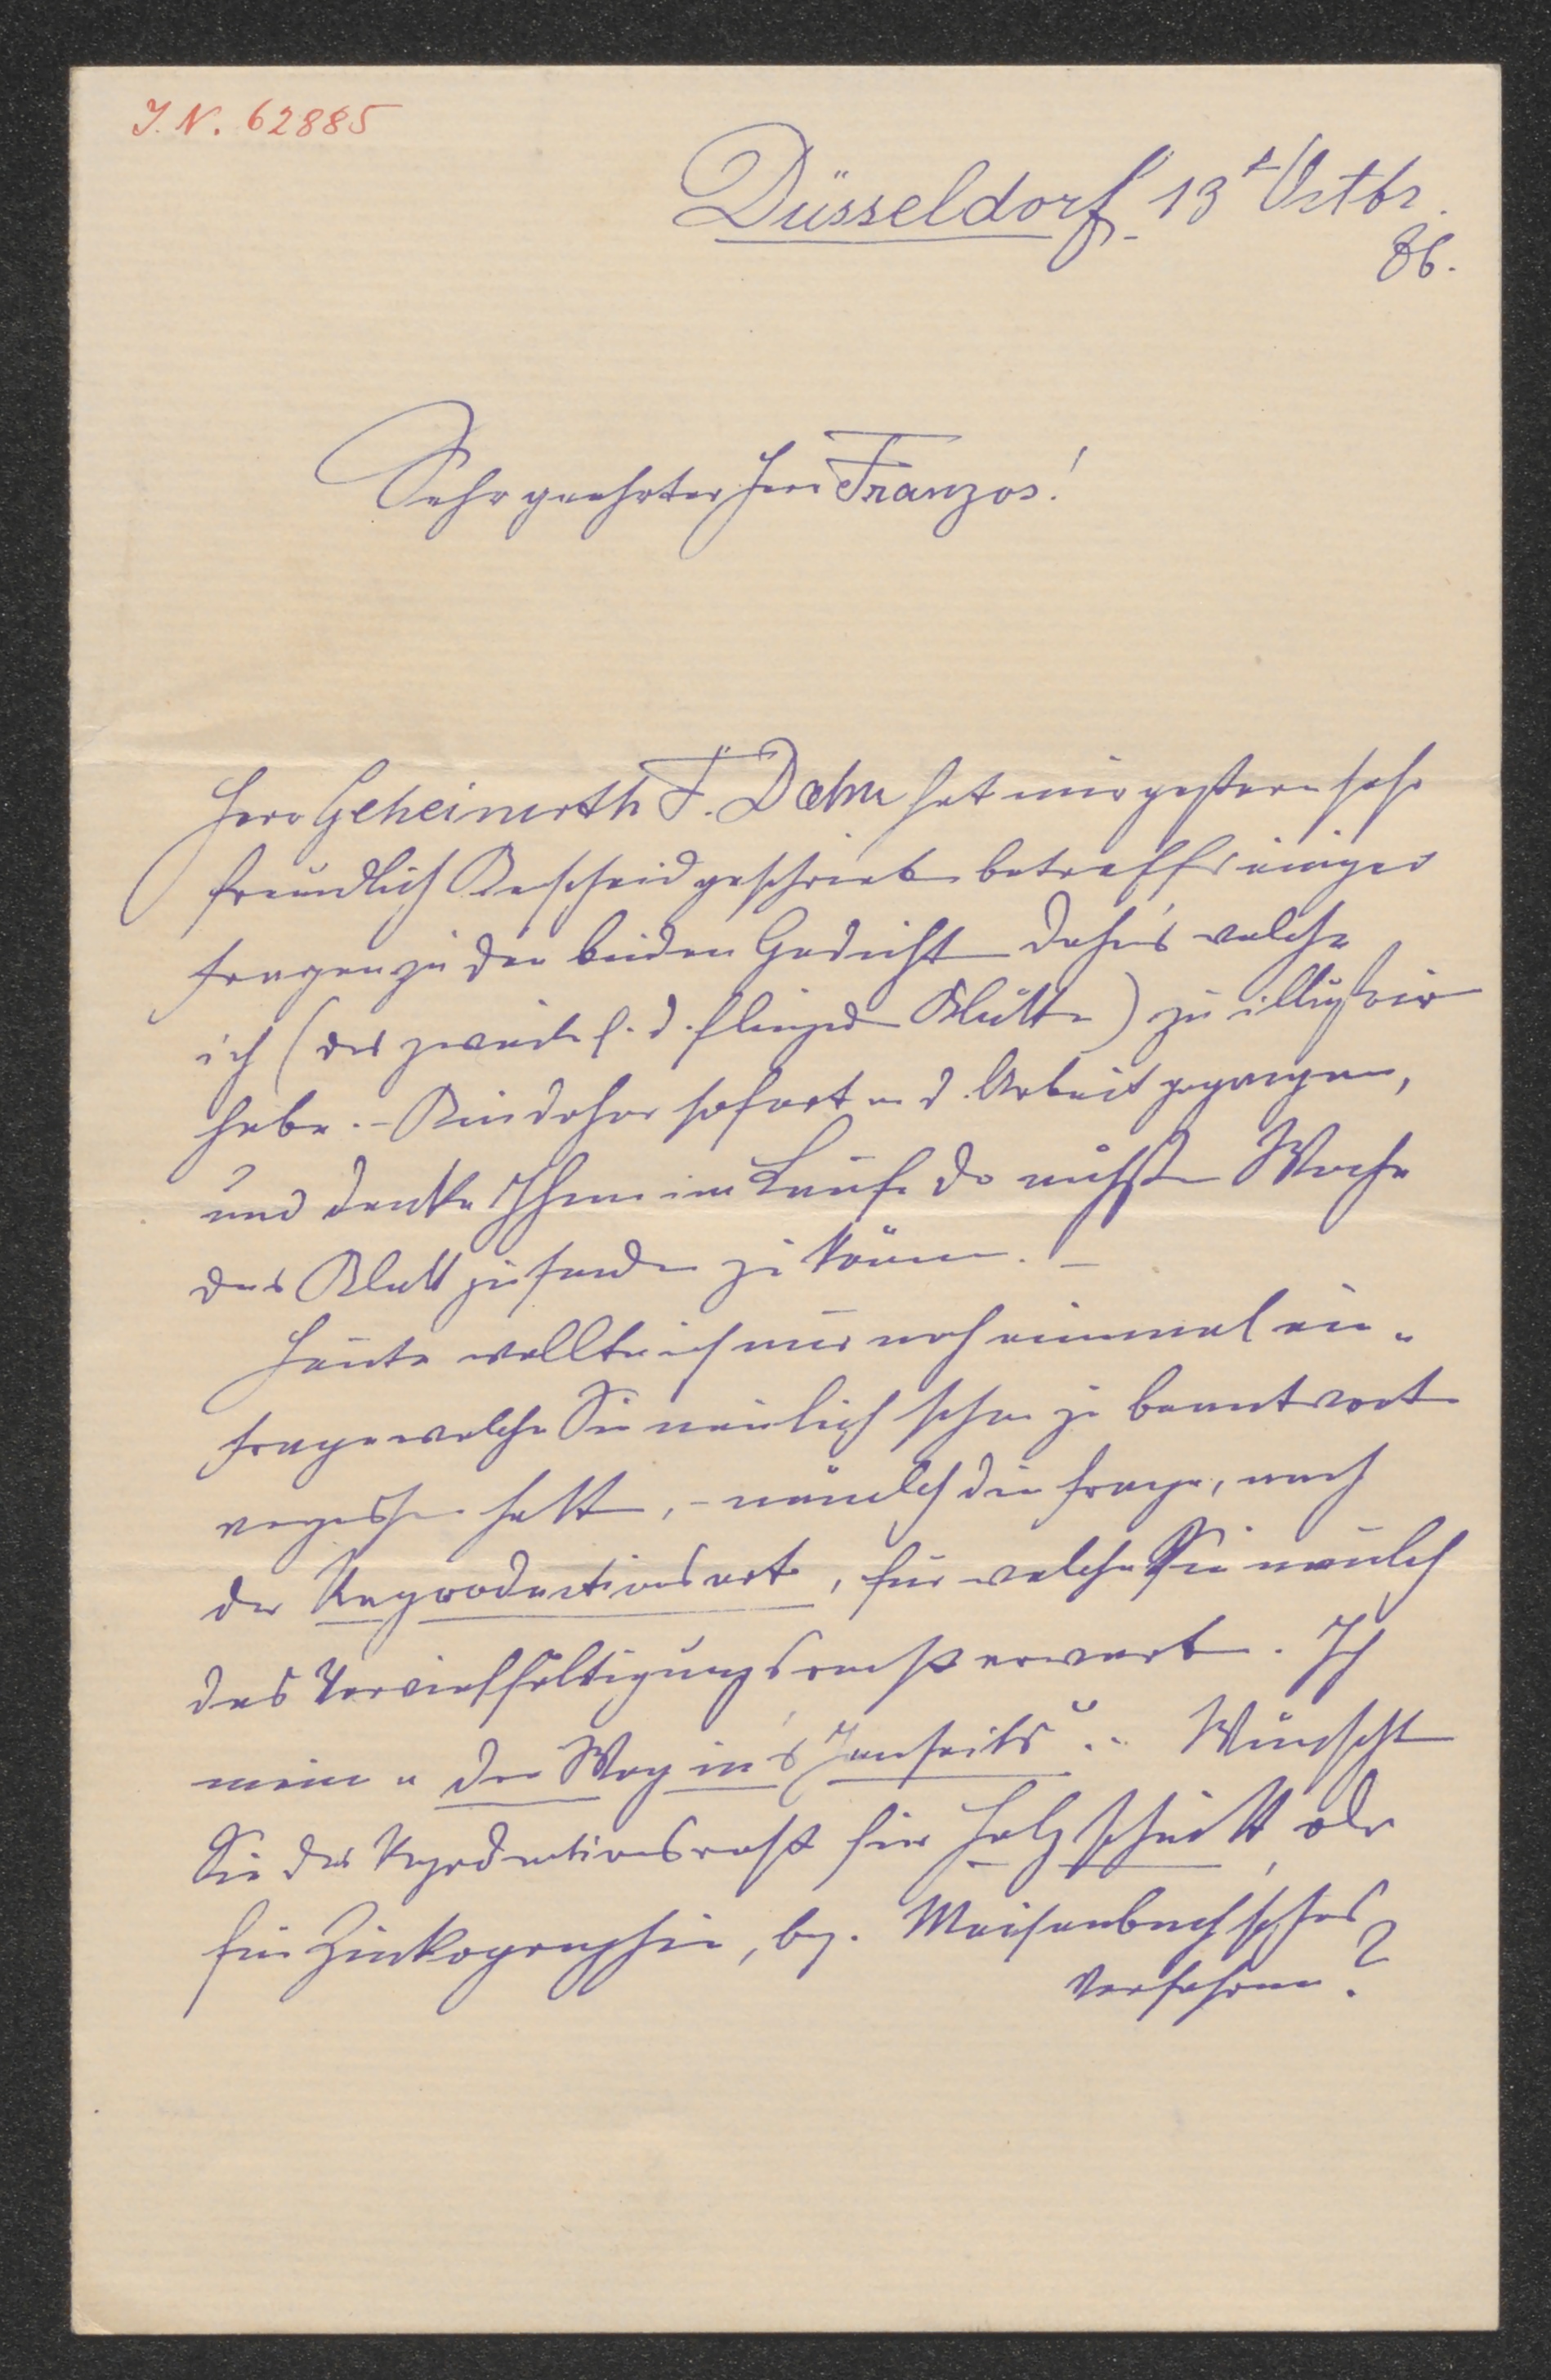 J. N. 62885
Düsseldorf 13t Octbr.
86.
Sehr geehrter Herr Franzos!
Herr Geheimrth F. Dahn hat mir gestern sehr
freundlich Bescheid geschrieben betreffs einiger
Fragen zu den beiden Gedichten Dahn's welche
ich (das zweite f. d. fliegenden Blätter) zu illustriren
habe. - Bin daher sofort an d. Arbeit gegangen,
und denke Ihnen im Laufe der nächsten Woche
das Blatt zusenden zu können. -
Heute wollte ich nur noch einmal ein-
fragen welche Sie neulich schon zu beantworten
vergessen hatten, - nämlich die Frage, nach
der Reproductionsart, für welche Sie neulich
das Vervielfältigungsrecht erwarben. Ich
meine "Der Weg in's Jenseits". - Wünschten
Sie das Reproductionsrecht für Holzschnitt, oder
für Zinkographie, bez. Meisenbach'sches
Verfahren?